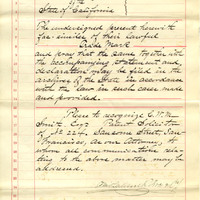 of the
State of California
The undersigned present herewith
fac-similes of their lawful
Trade Mark
and pray that the same together with
the accompanying statement and
declaration may be filed in the
archives of the State in accordance
with the law in such cases made
and provided.
Please to recognize C. W. M.
Smith Esq. Patent Solicitor
of No 224, Sansome Street, San
Francisco, as our attorney, to
whom all communications rela-
ting to the above matter may be
addressed.